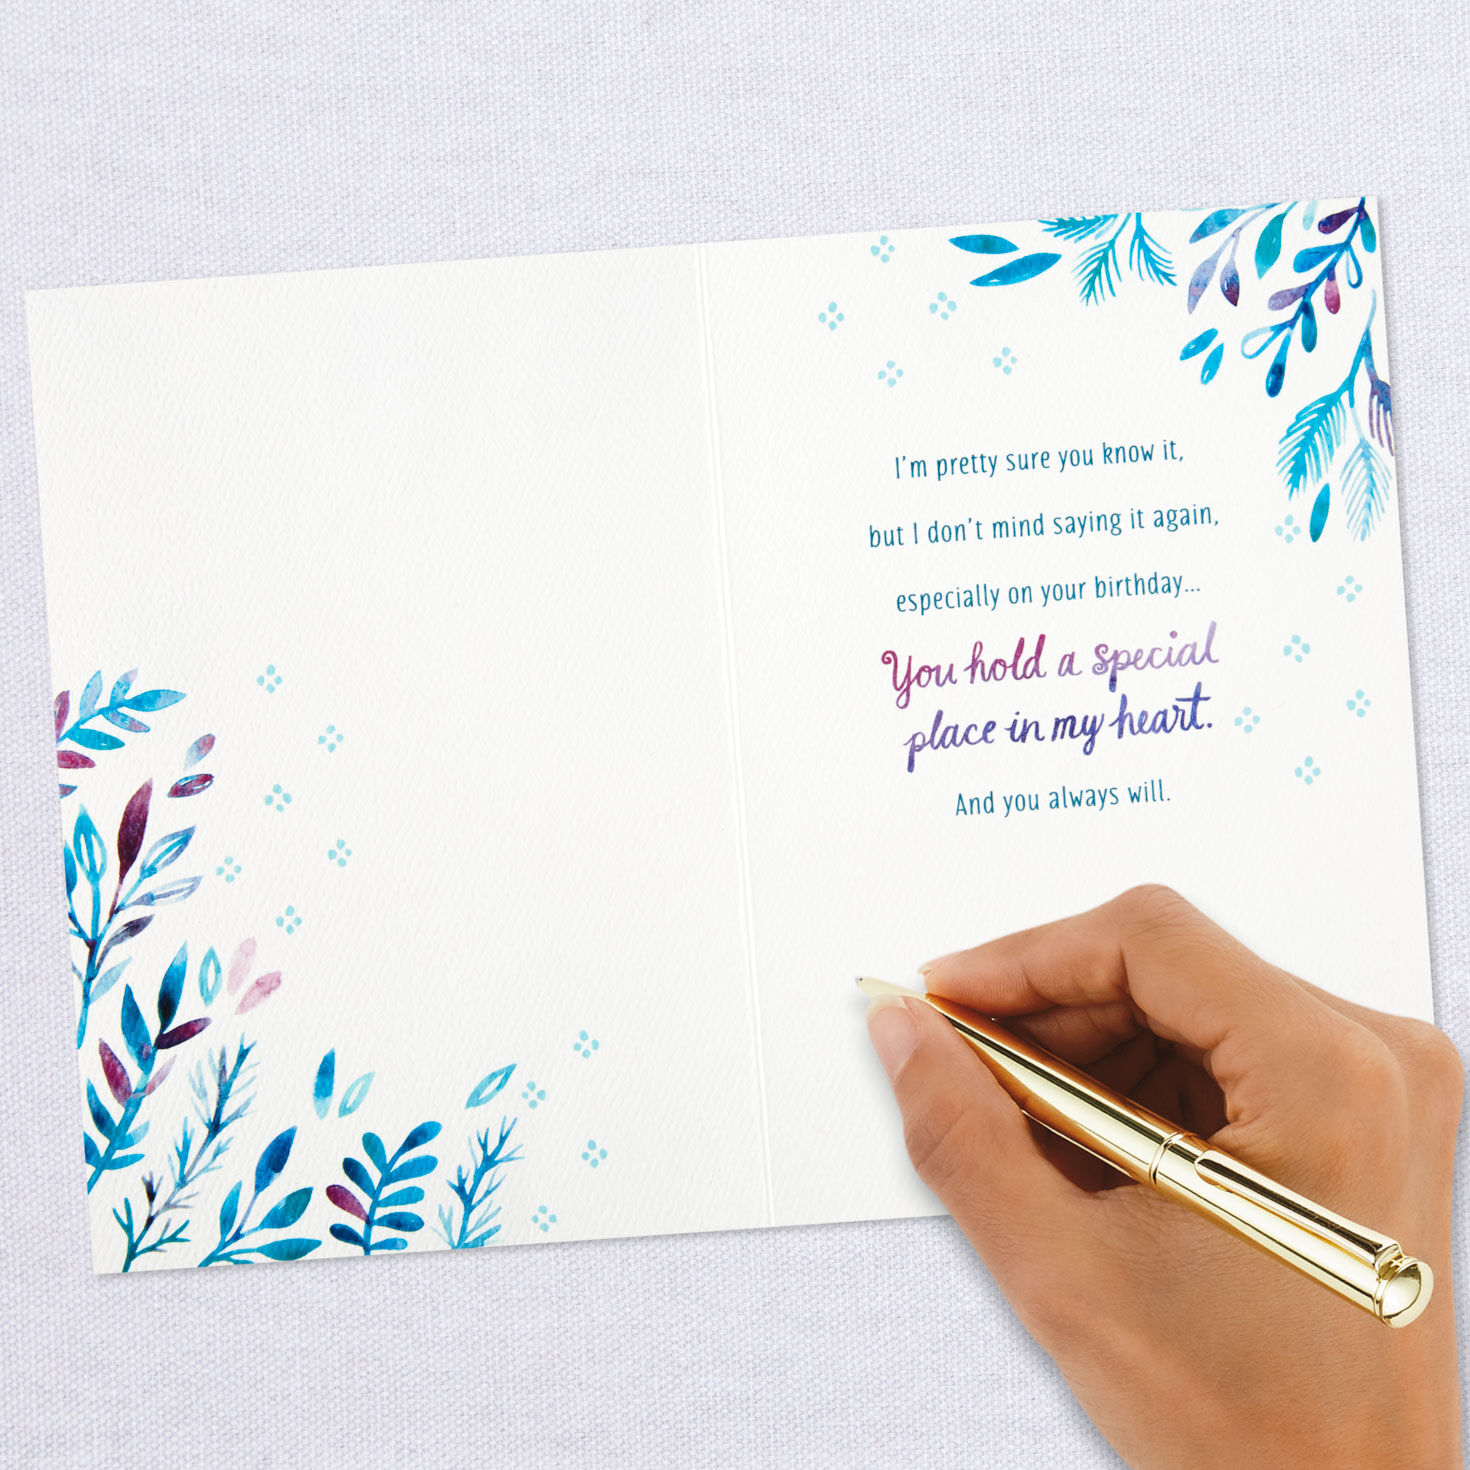 I'm pretty sure you know it,
but I don't mind saying it again,
especially on your birthday...
You hold a special
place in my heart.
And you always will.